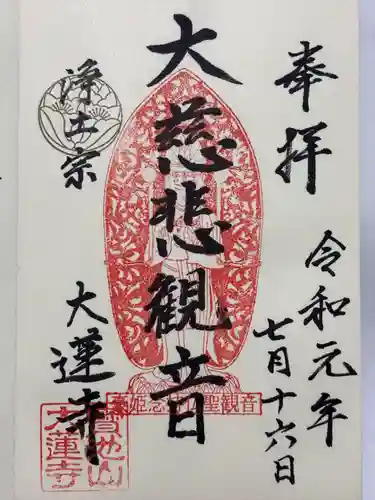 奉拝
令和元年
七月十六日
大慈悲観音
浄土宗
大蓮寺
聖観音
大蓮寺